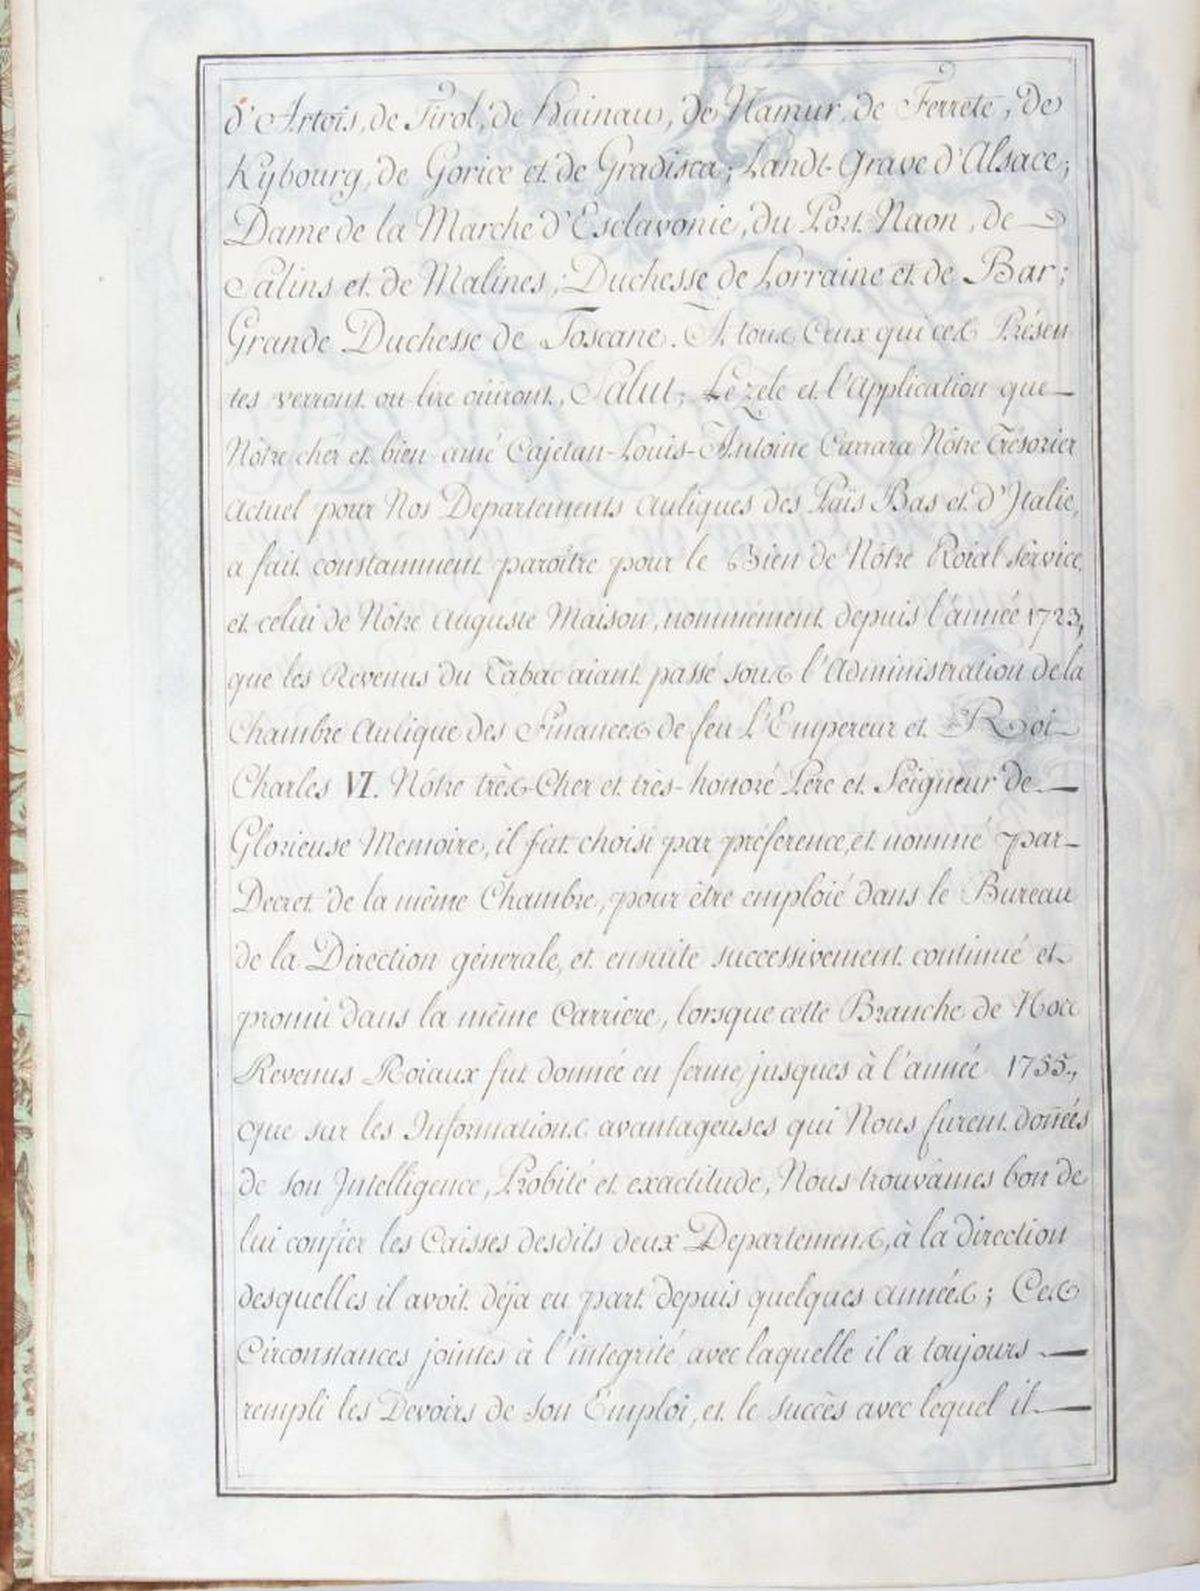 d'Artois, de Tirol, de Hainau, de Namur, de Ferrete, de
Kybourg, de Gorice et de Gradisca; Landt-Grave d'Alsace;
Dame de la Marche d'Esclavonie, du Port-Naon, de
Salins et de Malines; Duchesse de Lorraine et de Bar;
Grande Duchesse de Toscane. A tous Ceux qui ces Présen
tes verront ou lire oüiront, Salut; Le zele et l'Application que
Nôtre chér et bien-amé Cajetan-Louis-Antoine Carrara Nôtre Trésorier
Actuel pour Nos Departements Auliques des Païs Bas et d'Italie,
a fait constamment paroître pour le Bien de Nôtre Roial Service,
et celui de Nôtre Auguste Maison, nommément depuis l'année 1723,
que les Revenus du Tabac aiant passé sous l'Administration de la
Chambre Aulique des Finances de feu l'Empereur et Roi
Charles VI. Nôtre très-Cher et très-honoré Pere et Seigneur de
Glorieuse Memoire, il fut choisi par préference, et nommé par
Decret de la même Chambre, pour être emploié dans le Bureau
de la Direction générale, et ensuite successivement continué et
promu dans la même Carriere, lorsque cette Branche de Nos
Revenus Roiaux fut donnée en ferme jusques à l'année 1755.,
que sur les Informations avantageuses qui Nous furent donées
de son Intelligence, Probité et exactitude, Nous trouvâmes bon de
lui confier les Caisses desdits deux Departemens, à la direction
desquelles il avoit déja eu part depuis quelques années; Ces
Circonstances jointes à l'integrité avec laquelle il a toujours
rempli les Devoirs de son Emploi, et le succès avec lequel il